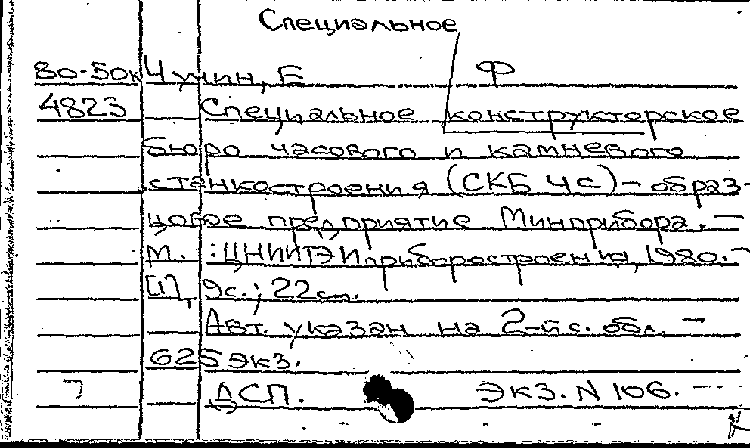 Специальное
80-50к Чунин, Б Ф
4823 Специальное конструкторское
бюро часового и камневого
станкостроения (СКБ ЧС) - образ-
цовое предприятие Минприбора. -
М. : ЦНИИТЭИприборостроения, 1980. -
[1], 9с.; 22см.
Авт. указан на 2-й с. обл. -
625 экз.
7 ДСП. ЭКЗ. N 106. --